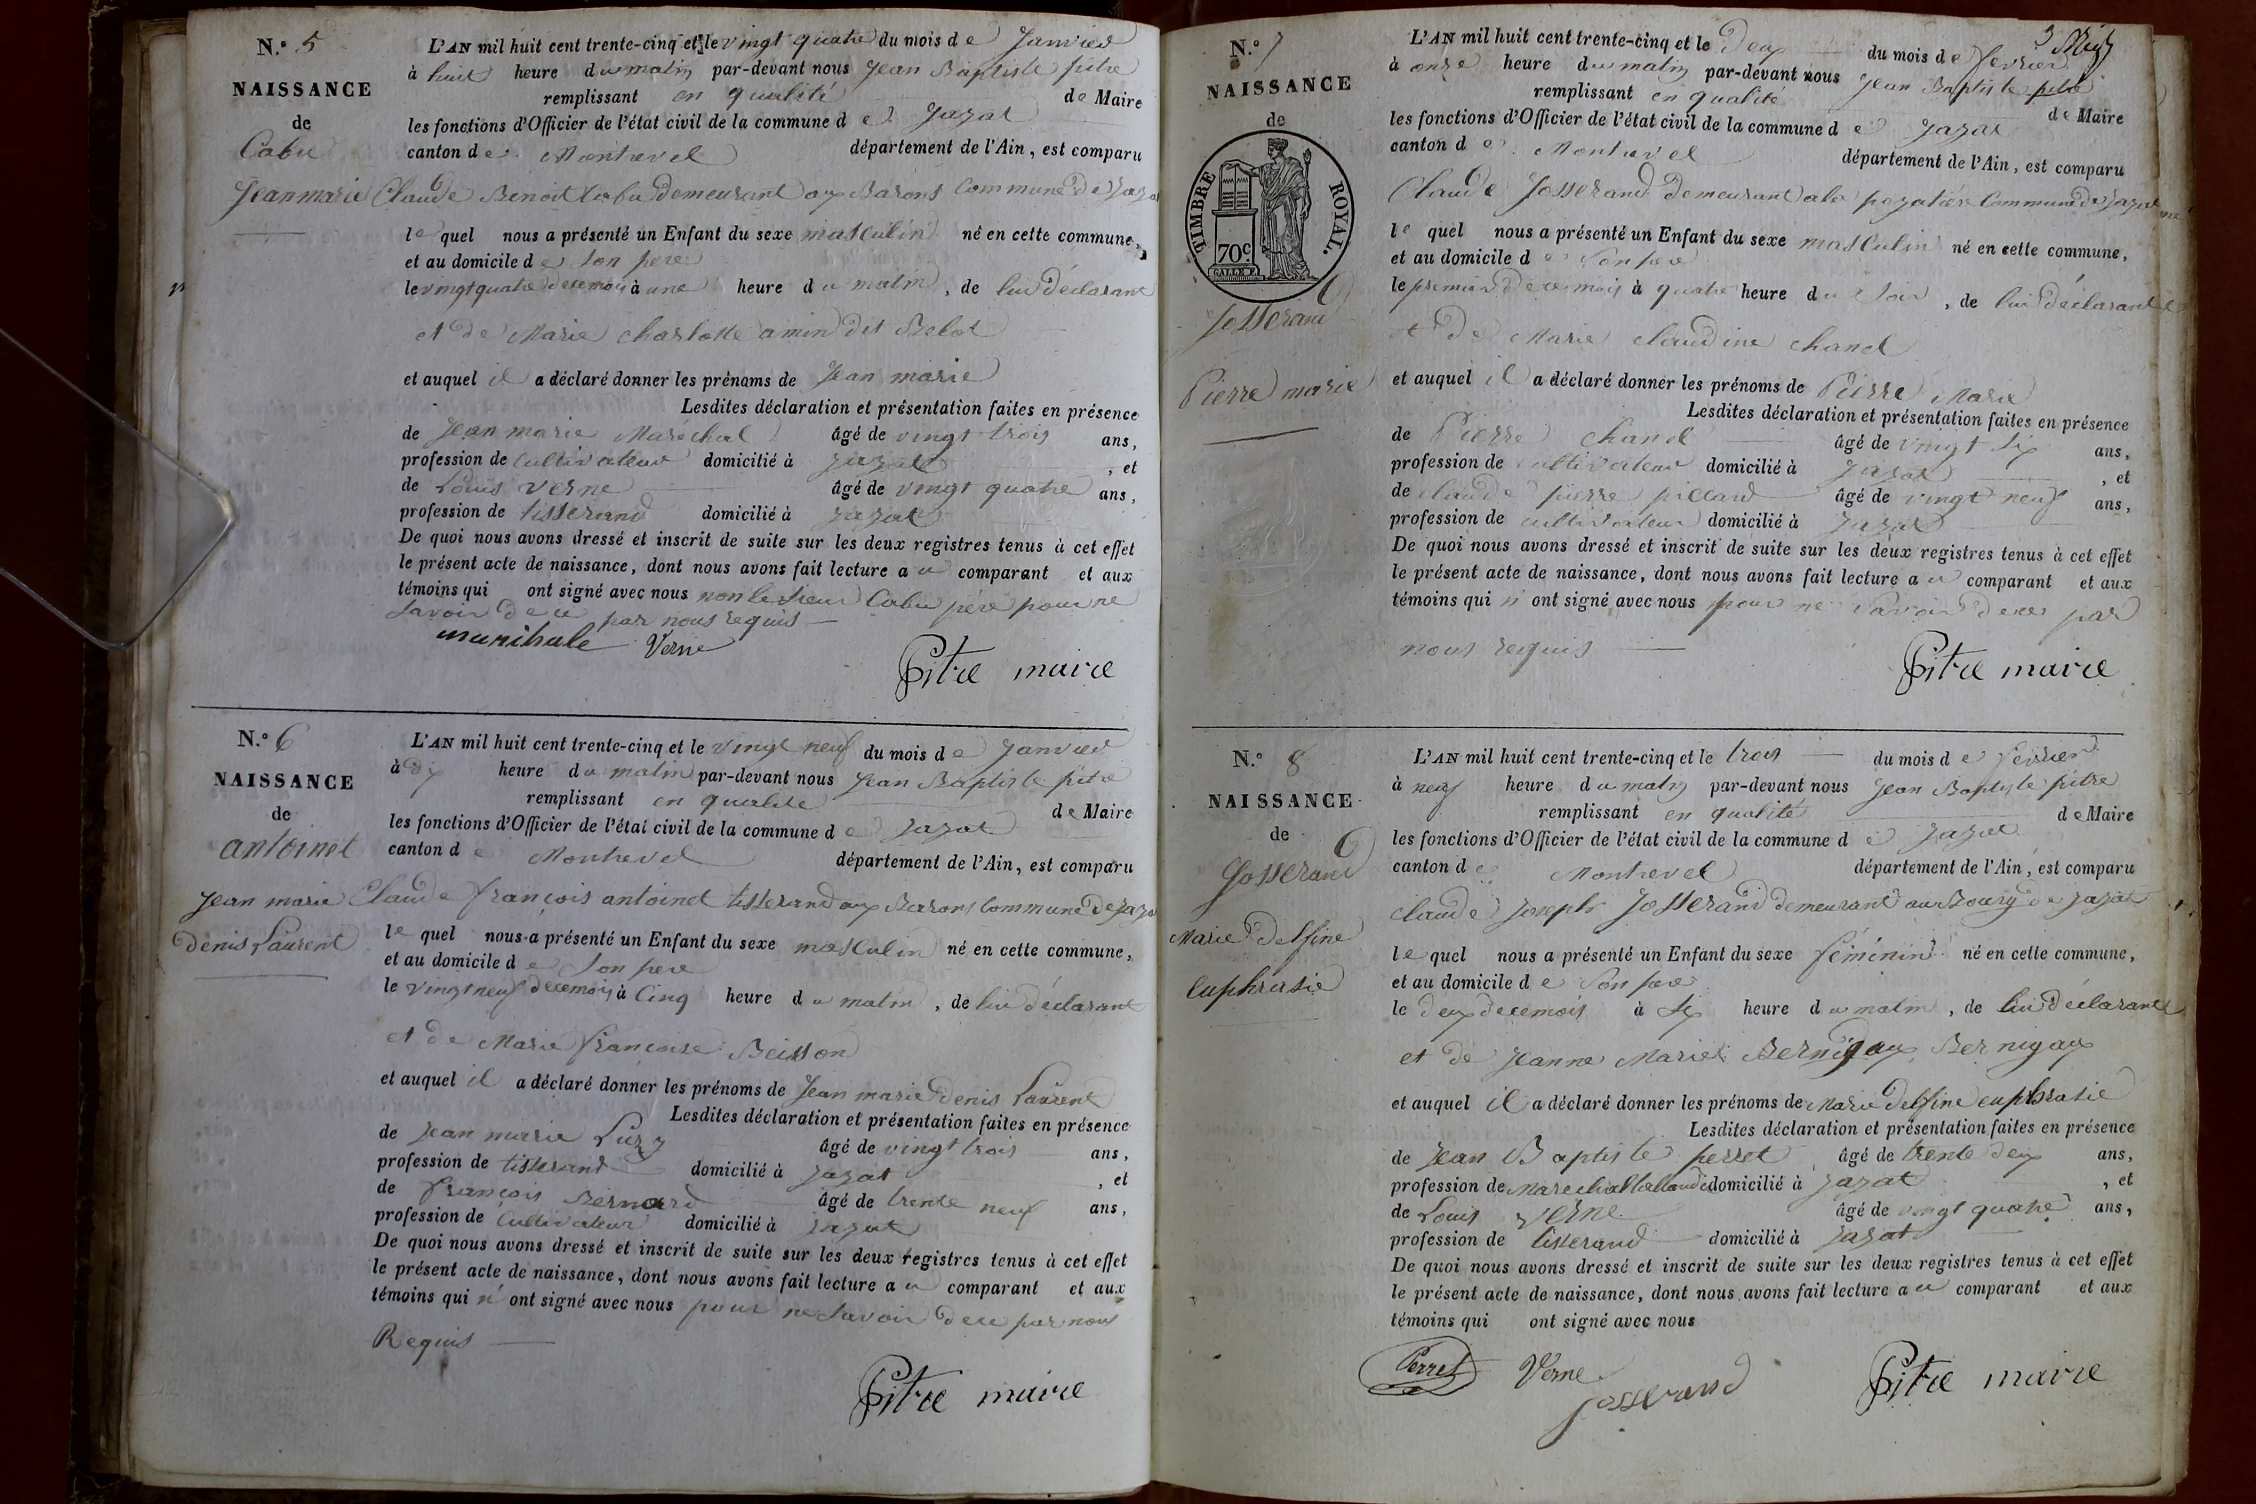 N.° 5
NAISSANCE
de
Cabu
Jean marie
L'AN mil huit cent trente-cinq et le vingt quatre du mois de Janvier
à huit heure du matin par-devant nous Jean Baptiste pitre
remplissant en qualité de Maire
les fonctions d'Officier de l'état civil de la commune de Jazat
canton de Montrevel département de l'Ain, est comparu
Claude Benoit Cabu demeurant aux Barons Commune de Jazat
le quel nous a présenté un Enfant du sexe masculin né en cette commune,
et au domicile de son pere
le vingt quatre de ce mois à une heure du matin, de lui déclarant
et de Marie charlotte amin dit Belot
et auquel il a déclaré donner les prénoms de Jean marie
Lesdites déclaration et présentation faites en présence
de Jean marie Maréchal âgé de vingt trois ans,
profession de cultivateur domicilié à Jazat, et
de Louis verne âgé de vingt quatre ans,
profession de tisserand domicilié à Jazat
De quoi nous avons dressé et inscrit de suite sur les deux registres tenus à cet effet
le présent acte de naissance, dont nous avons fait lecture au comparant et aux
témoins qui ont signé avec nous non le sieur Cabu père pour ne
savoir de ce par nous requis
Verne
Pitre maire
N.° 6
NAISSANCE
de
antoinet
Jean marie
denis Laurent
L'AN mil huit cent trente-cinq et le vingt neuf du mois de Janvier
à dix heure du matin par-devant nous Jean Baptiste pitre
remplissant en qualité de Maire
les fonctions d'Officier de l'état civil de la commune de Jazat
canton de Montrevel département de l'Ain, est comparu
Claude françois antoinet tisserand aux Barons Commune de Jazat
le quel nous a présenté un Enfant du sexe masculin né en cette commune,
et au domicile de son pere
le vingt neuf de ce mois à Cinq heure du matin, de lui déclarant
et de Marie françoise Beisson
et auquel il a déclaré donner les prénoms de Jean marie denis Laurent
Lesdites déclaration et présentation faites en présence
de Jean marie Luzy âgé de vingt trois ans,
profession de tisserand domicilié à Jazat, et
de françois Bernard âgé de trente neuf ans,
profession de Cultivateur domicilié à Jazat
De quoi nous avons dressé et inscrit de suite sur les deux registres tenus à cet effet
le présent acte de naissance, dont nous avons fait lecture au comparant et aux
témoins qui n' ont signé avec nous pour ne savoir de ce par nous
Requis
Pitre maire
3
N.° 7
NAISSANCE
de
TIMBRE ROYAL.
70c
Josserand
Pierre marie
L'AN mil huit cent trente-cinq et le Deux du mois de fevrier
à onze heure du matin par-devant nous Jean Baptiste pitre
remplissant en qualité de Maire
les fonctions d'Officier de l'état civil de la commune de Jazat
canton de Montrevel département de l'Ain, est comparu
Claude Josserand demeurant a la Commune de Jazat
le quel nous a présenté un Enfant du sexe masculin né en cette commune,
et au domicile de son pere
le premier de ce mois à quatre heure du soir, de lui déclarant
et de Marie claudine chanel
et auquel il a déclaré donner les prénoms de Pierre Marie
Lesdites déclaration et présentation faites en présence
de Pierre chanel âgé de vingt six ans,
profession de cultivateur domicilié à Jazat, et
de claude pierre piccard âgé de vingt neuf ans,
profession de cultivateur domicilié à Jazat
De quoi nous avons dressé et inscrit de suite sur les deux registres tenus à cet effet
le présent acte de naissance, dont nous avons fait lecture au comparant et aux
témoins qui n' ont signé avec nous pour ne savoir de ce par
nous requis
Pitre maire
N.° 8
NAISSANCE
de
Josserand
Marie Delfine
euphrasie
L'AN mil huit cent trente-cinq et le trois du mois de février
à neuf heure du matin par-devant nous Jean Baptiste pitre
remplissant en qualité de Maire
les fonctions d'Officier de l'état civil de la commune de Jazat
canton de Montrevel département de l'Ain, est comparu
claude Joseph Josserand demeurant au Bourg de Jazat
le quel nous a présenté un Enfant du sexe féminin né en cette commune,
et au domicile de son pere
le deux de ce mois à six heure du matin, de lui déclarant
et de Jeanne Marie Bernigaux Bernigaux
et auquel il a déclaré donner les prénoms de Marie Delfine euphrasie
Lesdites déclaration et présentation faites en présence
de Jean Baptiste perret âgé de trente deux ans,
profession de Marechal domicilié à Jazat, et
de Louis verne âgé de vingt quatre ans,
profession de tisserand domicilié à Jazat
De quoi nous avons dressé et inscrit de suite sur les deux registres tenus à cet effet
le présent acte de naissance, dont nous avons fait lecture au comparant et aux
témoins qui ont signé avec nous
Perret Verne Josserand Pitre maire